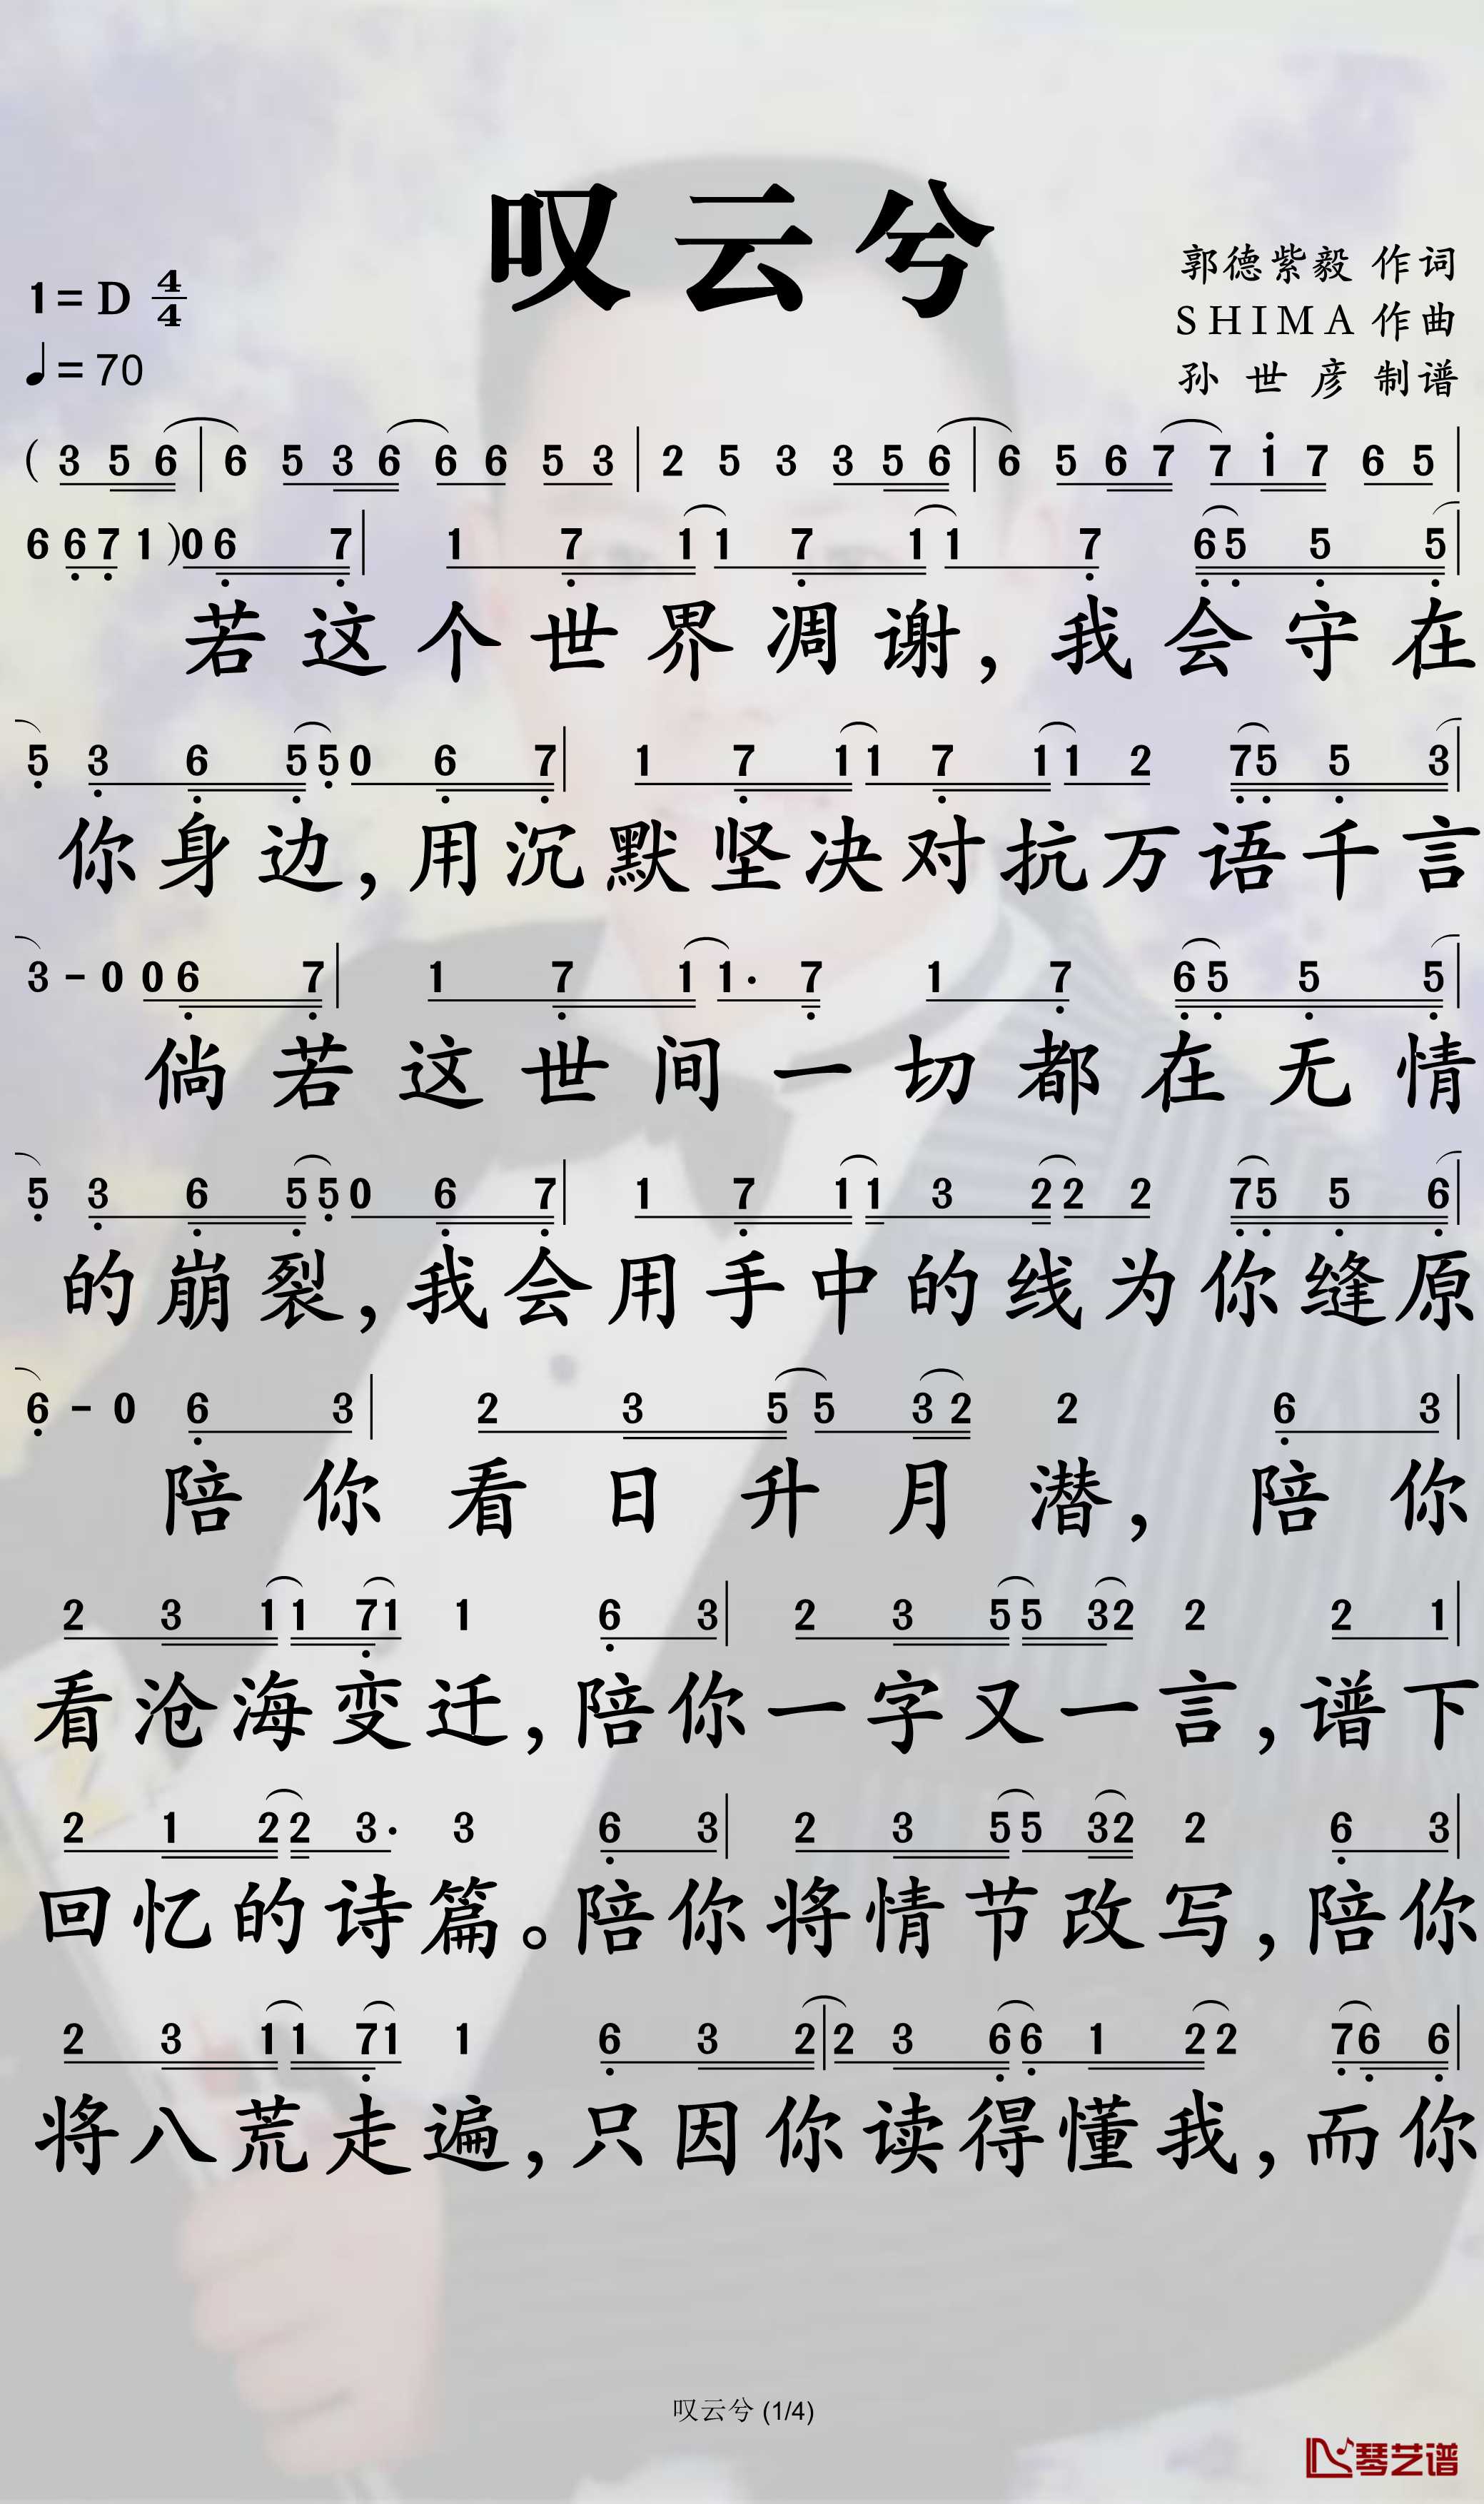 叹云兮
1=D 4/4
♩=70
郭德紫毅 作词
SHIMA 作曲
孙世彦 制谱
( 3 5 6 | 6 5 3 6 6 6 5 3 | 2 5 3 3 5 6 | 6 5 6 7 7 1 7 6 5 |
6 6 7 1 ) 0 6 7 | 1 7 1 1 7 1 1 7 6 5 5 5 |
若这个世界凋谢，我会守在
5 3 6 5 5 0 6 7 | 1 7 1 1 7 1 1 2 7 5 5 3 |
你身边，用沉默坚决对抗万语千言
3 - 0 0 6 7 | 1 7 1 1· 7 1 7 6 5 5 5 |
倘若这世间一切都在无情
5 3 6 5 5 0 6 7 | 1 7 1 1 3 2 2 2 7 5 5 6 |
的崩裂，我会用手中的线为你缝原
6 - 0 6 3 | 2 3 5 5 3 2 2 6 3 |
陪你看日升月潜，陪你
2 3 1 1 7 1 1 6 3 | 2 3 5 5 3 2 2 2 1 |
看沧海变迁，陪你一字又一言，谱下
2 1 2 2 3· 3 6 3 | 2 3 5 5 3 2 2 6 3 |
回忆的诗篇。陪你将情节改写，陪你
2 3 1 1 7 1 1 6 3 2 | 2 3 6 6 1 2 2 7 6 6 |
将八荒走遍，只因你读得懂我，而你
叹云兮 (1/4)
琴艺谱